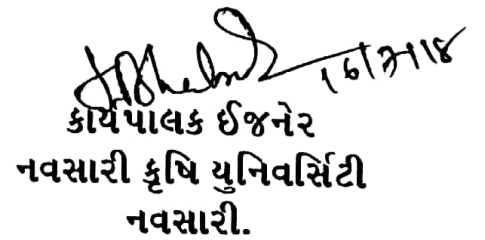 16/7/18
કાર્યપાલક ઈજનેર
નવસારી કૃષિ યુનિવર્સિટી
નવસારી.